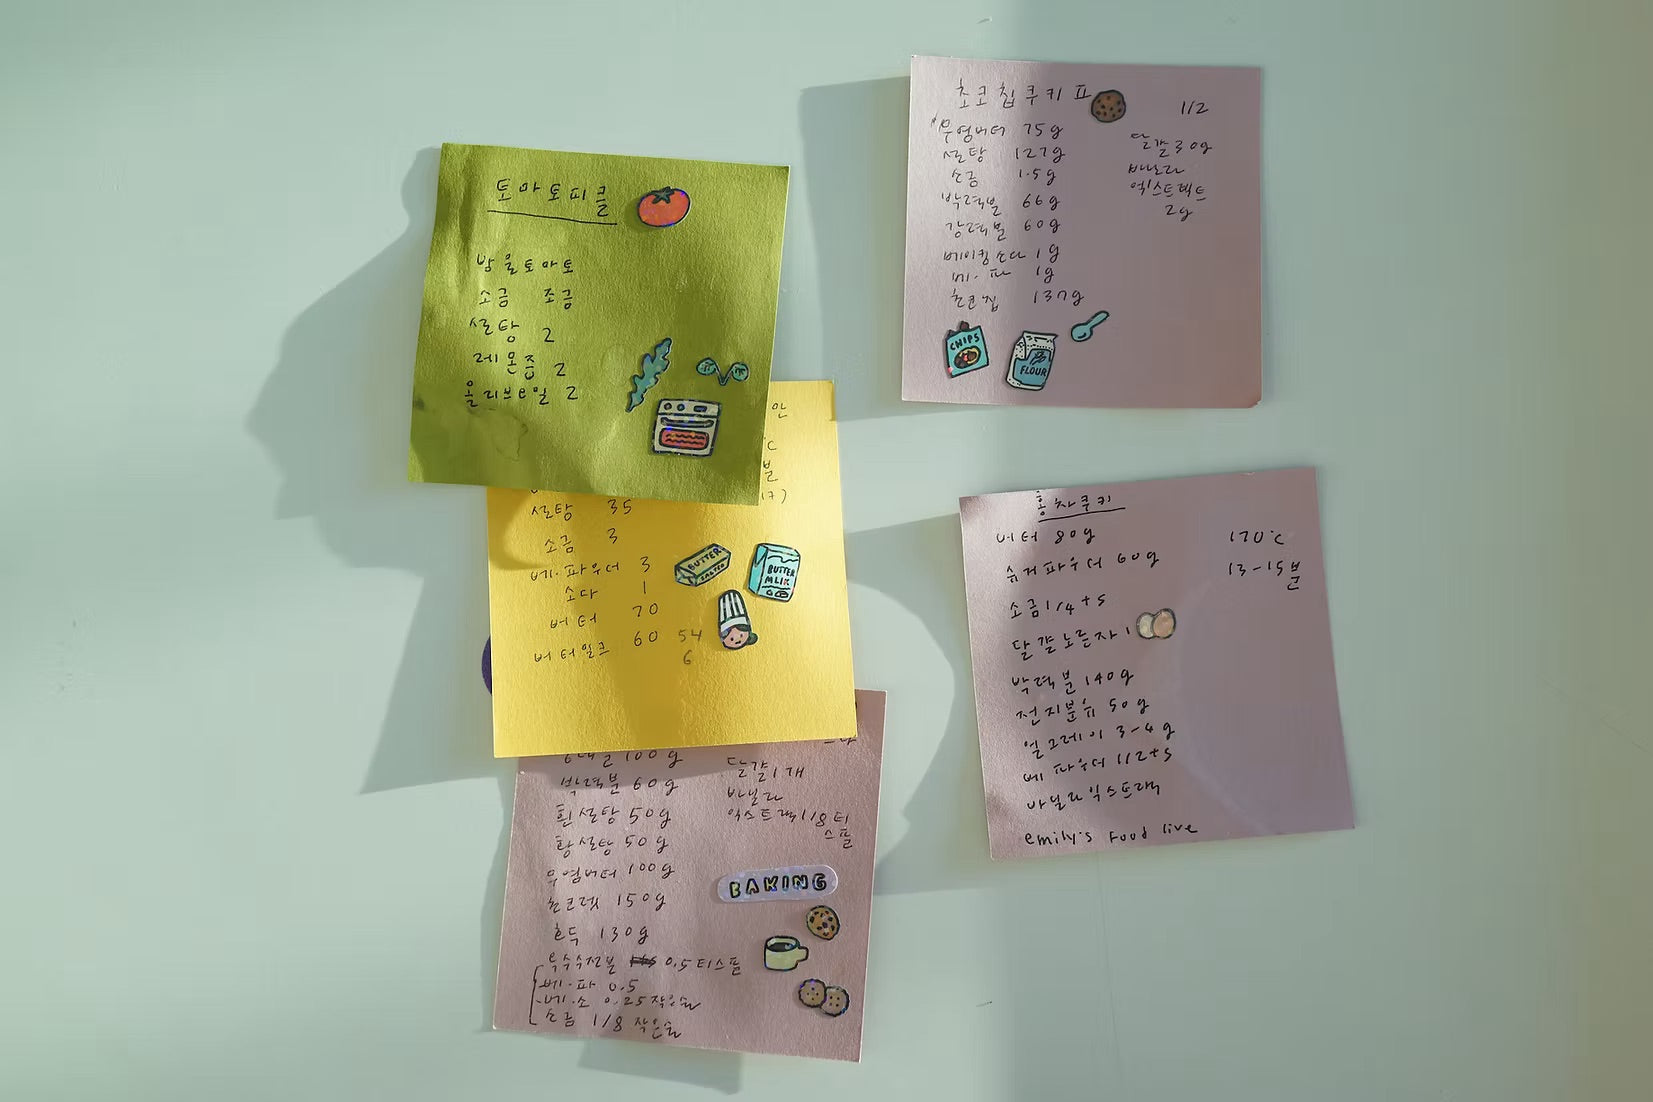 토마토피클
방울토마토
소금 조금
설탕 2
레몬즙 2
올리브오일 2
설탕 35
소금 3
베.파우더 3
소다 1
버터 70
버터밀크 60 54
6
BUTTER
SALTED
BUTTER
MLIK
박력분 60g
흰설탕 50g
황설탕 50g
무염버터 100g
초코렛 150g
호두 130g
옥수수전분 0.5티스푼
베.파 0.5
베.소 0.25작은술
소금 1/8 작은술
달걀1개
바닐라
익스트랙1/8티
스푼
BAKING
초코칩쿠키
1/2
무염버터 75g
설탕 127g
소금 1.5g
박력분 66g
강력분 60g
베이킹소다 1g
베.파 1g
초코칩 137g
달걀30g
바닐라
익스트랙트
2g
CHIPS
FLOUR
홍차쿠키
버터 80g
슈가파우더 60g
소금1/4+s
달걀노른자1
박력분140g
전지분유 50g
얼그레이 3-4g
베 파우더 1/2+s
바닐라익스트랙
emily's Food live
170°C
13-15분